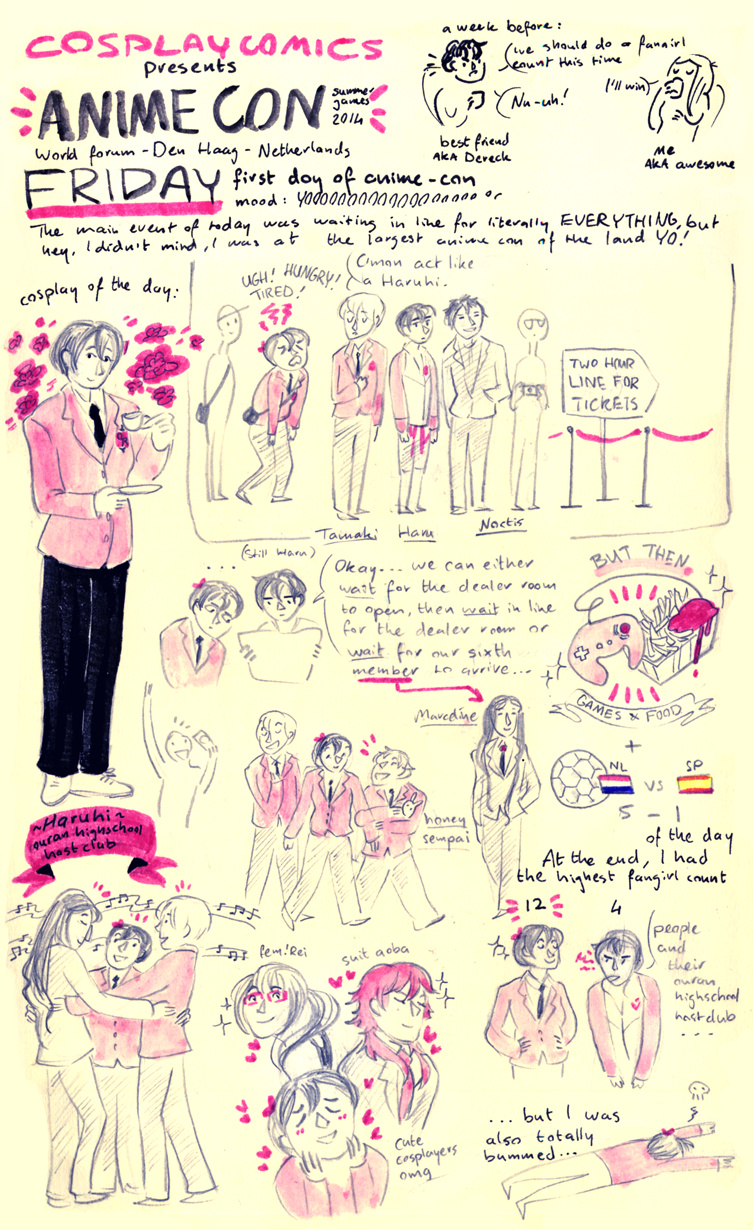 COSPLAYCOMICS
presents
ANIME CON
summer
games
2014
World forum - Den Haag - Netherlands
a week before:
we should do a fangirl
count this time
Nu-uh!
I'll win
best friend
AKA Dereck
me
AKA awesome
FRIDAY
first day of anime-con
mood:
The main event of today was waiting in line for literally EVERYTHING, but
hey, I didn't mind, I was at the largest anime con of the land YO!
cosplay of the day:
UGH! HUNGRY!
TIRED!
C'mon act like
a Haruhi.
TWO HOUR
LINE FOR
TICKETS
Tamaki
Haru
Noctis
...
(still Haru)
Okay... we can either
wait for the dealer room
to open, then wait in line
for the dealer room or
wait for our sixth
member to arrive...
BUT THEN
GAMES & FOOD
Marceline
honey
sempai
+
NL
vs
SP
5 - 1
~Haruhi~
ouran highschool
host club
of the day
At the end, I had
the highest fangirl count
12
4
people
and
their
ouran
highschool
host club
...
fem!Rei
suit aoba
cute
cosplayers
omg
...but I was
also totally
bummed...